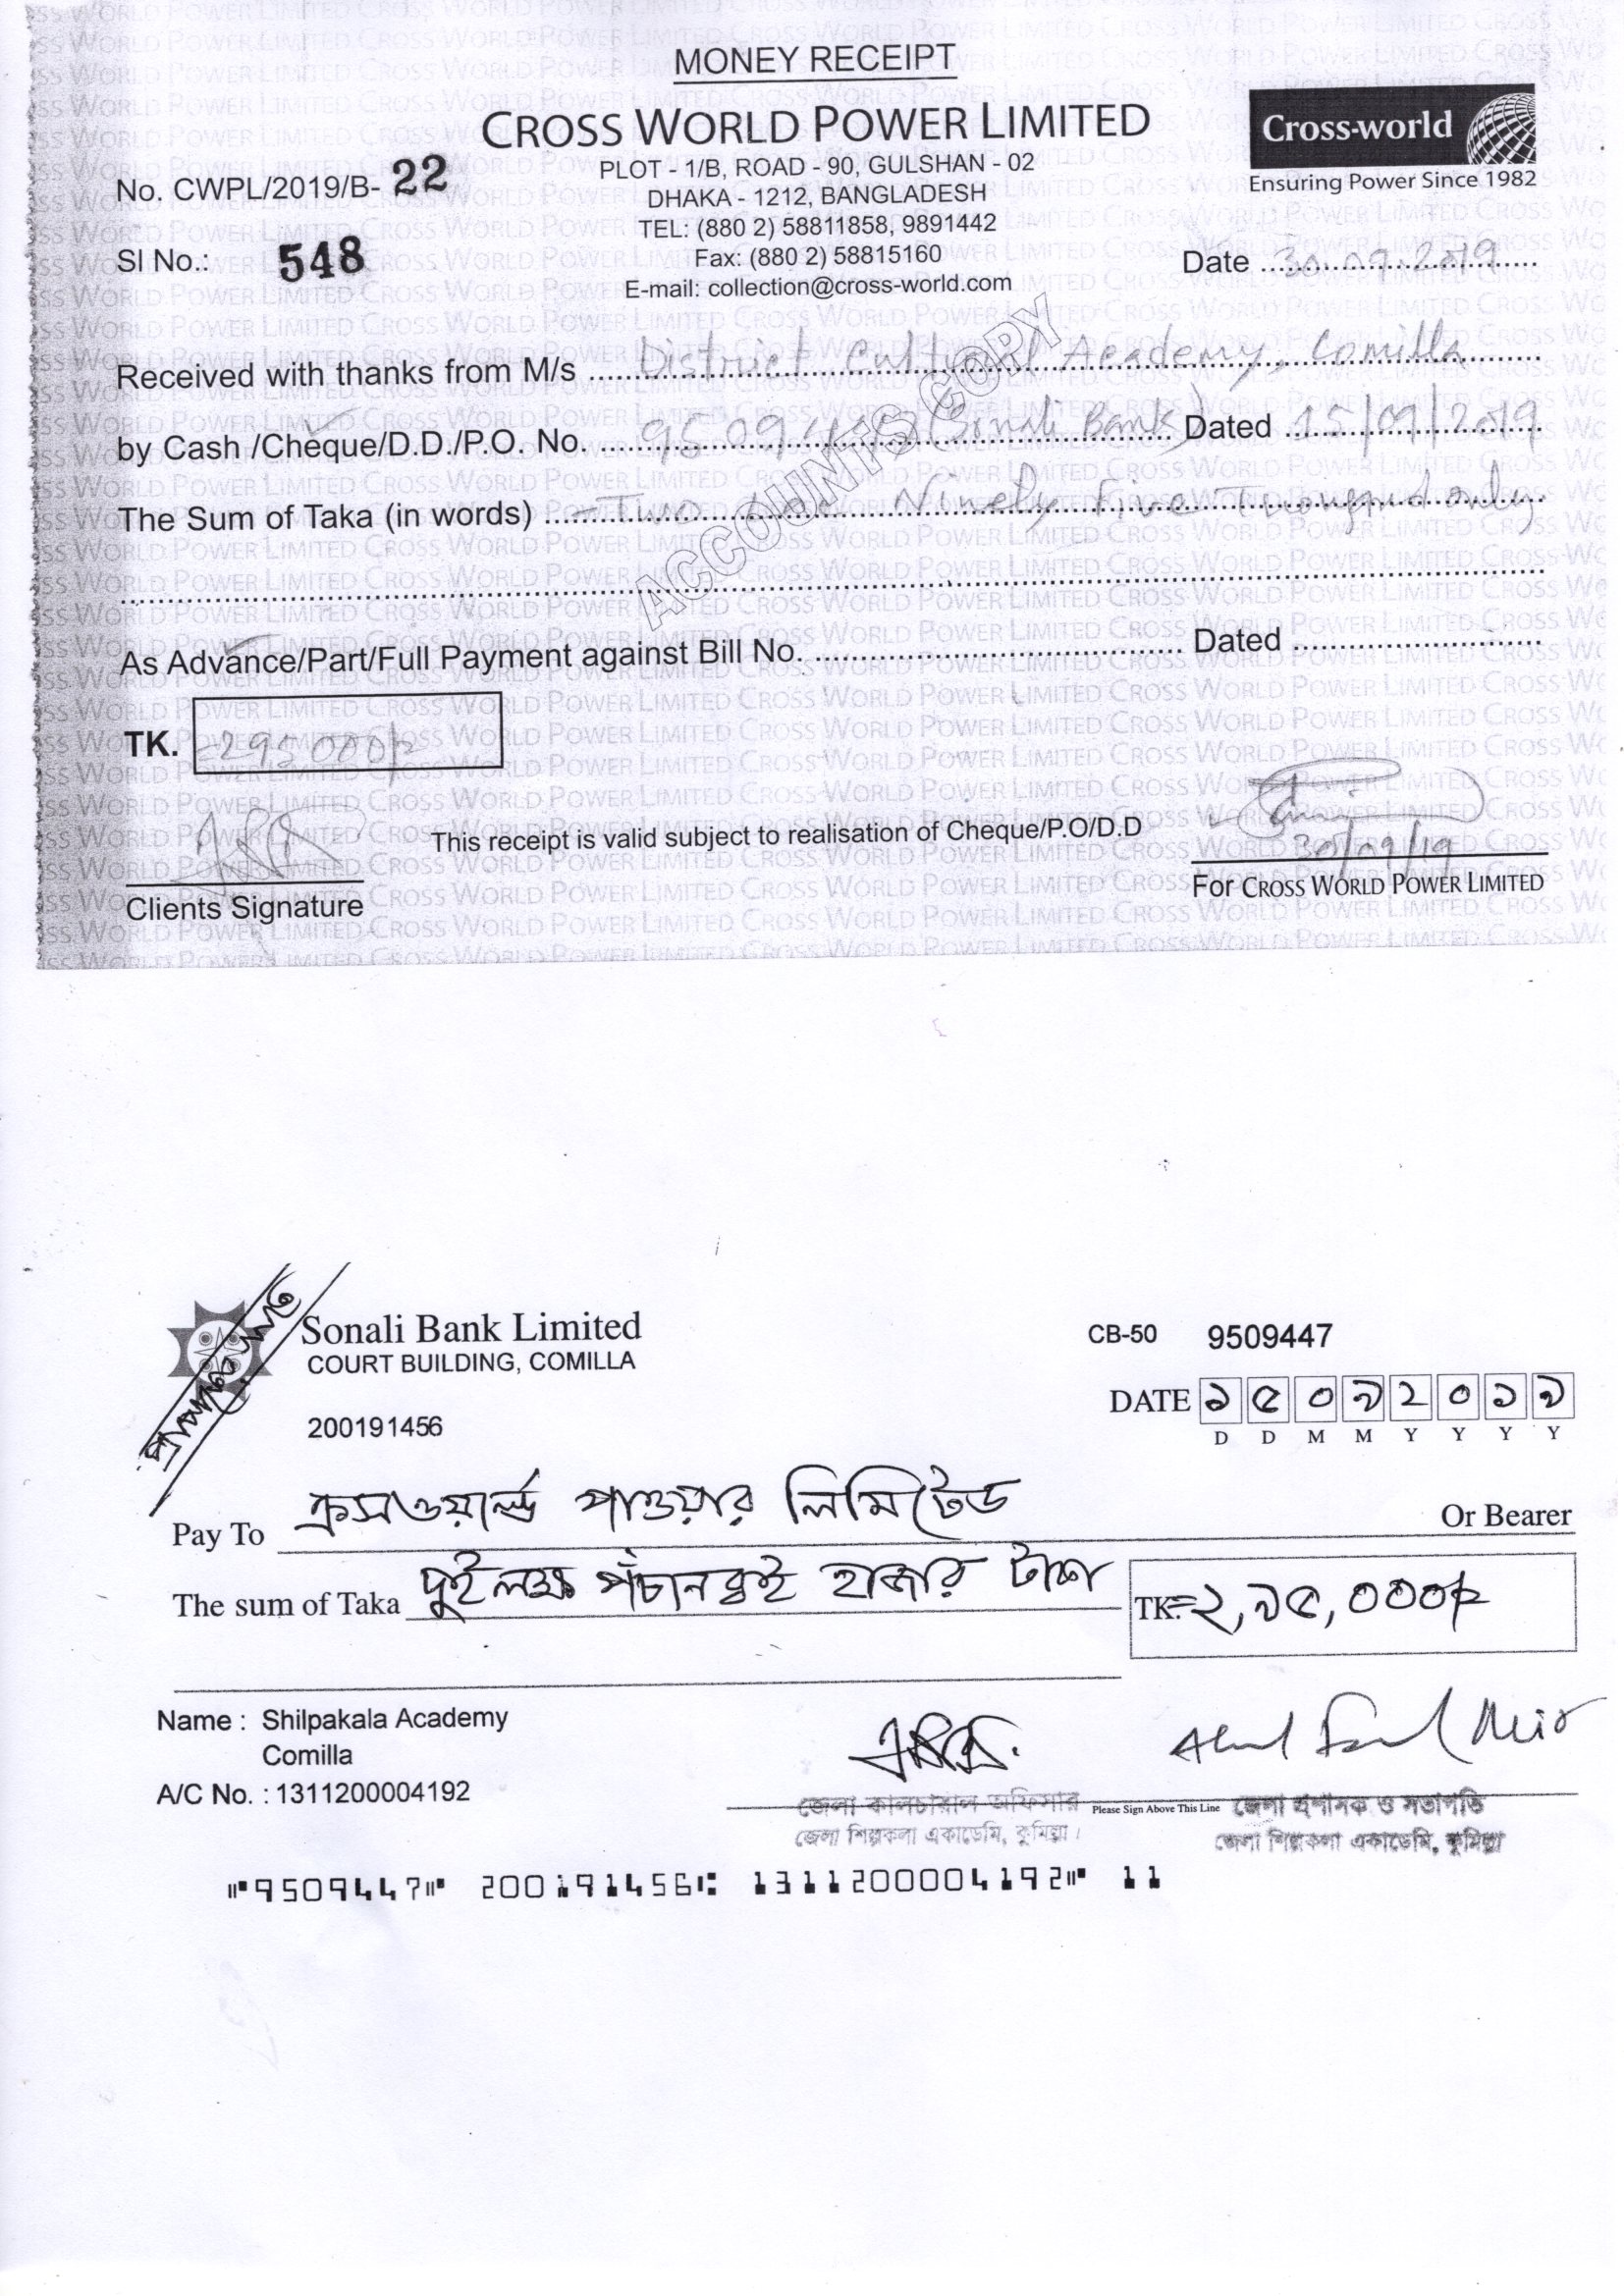 MONEY RECEIPT
CROSS WORLD POWER LIMITED
PLOT - 1/B, ROAD - 90, GULSHAN - 02
DHAKA - 1212, BANGLADESH
TEL: (880 2) 58811858, 9891442
Fax: (880 2) 58815160
E-mail: collection@cross-world.com
Cross-world
Ensuring Power Since 1982
No. CWPL/2019/B- 22
Sl No.: 548
Date 30.09.2019
Received with thanks from M/s District Cultural Academy, Comilla
by Cash /Cheque/D.D./P.O. No. (Sonali Bank) Dated 15/09/2019
The Sum of Taka (in words) Two Ninety Five only
ACCOUNTS COPY
As Advance/Part/Full Payment against Bill No. Dated
TK. 295000/-
This receipt is valid subject to realisation of Cheque/P.O/D.D
30/09/19
Clients Signature
For CROSS WORLD POWER LIMITED
Sonali Bank Limited
COURT BUILDING, COMILLA
200191456
CB-50 9509447
DATE ১৫০৯২০১৯
D D M M Y Y Y Y
Pay To ক্রসওয়ার্ল্ড পাওয়ার লিমিটেড Or Bearer
The sum of Taka দুই লক্ষ পঁচানব্বই হাজার টাকা TK.=২,৯৫,০০০/-
Name : Shilpakala Academy
Comilla
A/C No. : 1311200004192
জেলা কালচারাল অফিসার Please Sign Above This Line জেলা প্রশাসক ও সভাপতি
জেলা শিল্পকলা একাডেমি, কুমিল্লা। জেলা শিল্পকলা একাডেমি, কুমিল্লা
⑈9509447⑈ 200191456⑆ 1311200004192⑈ 11